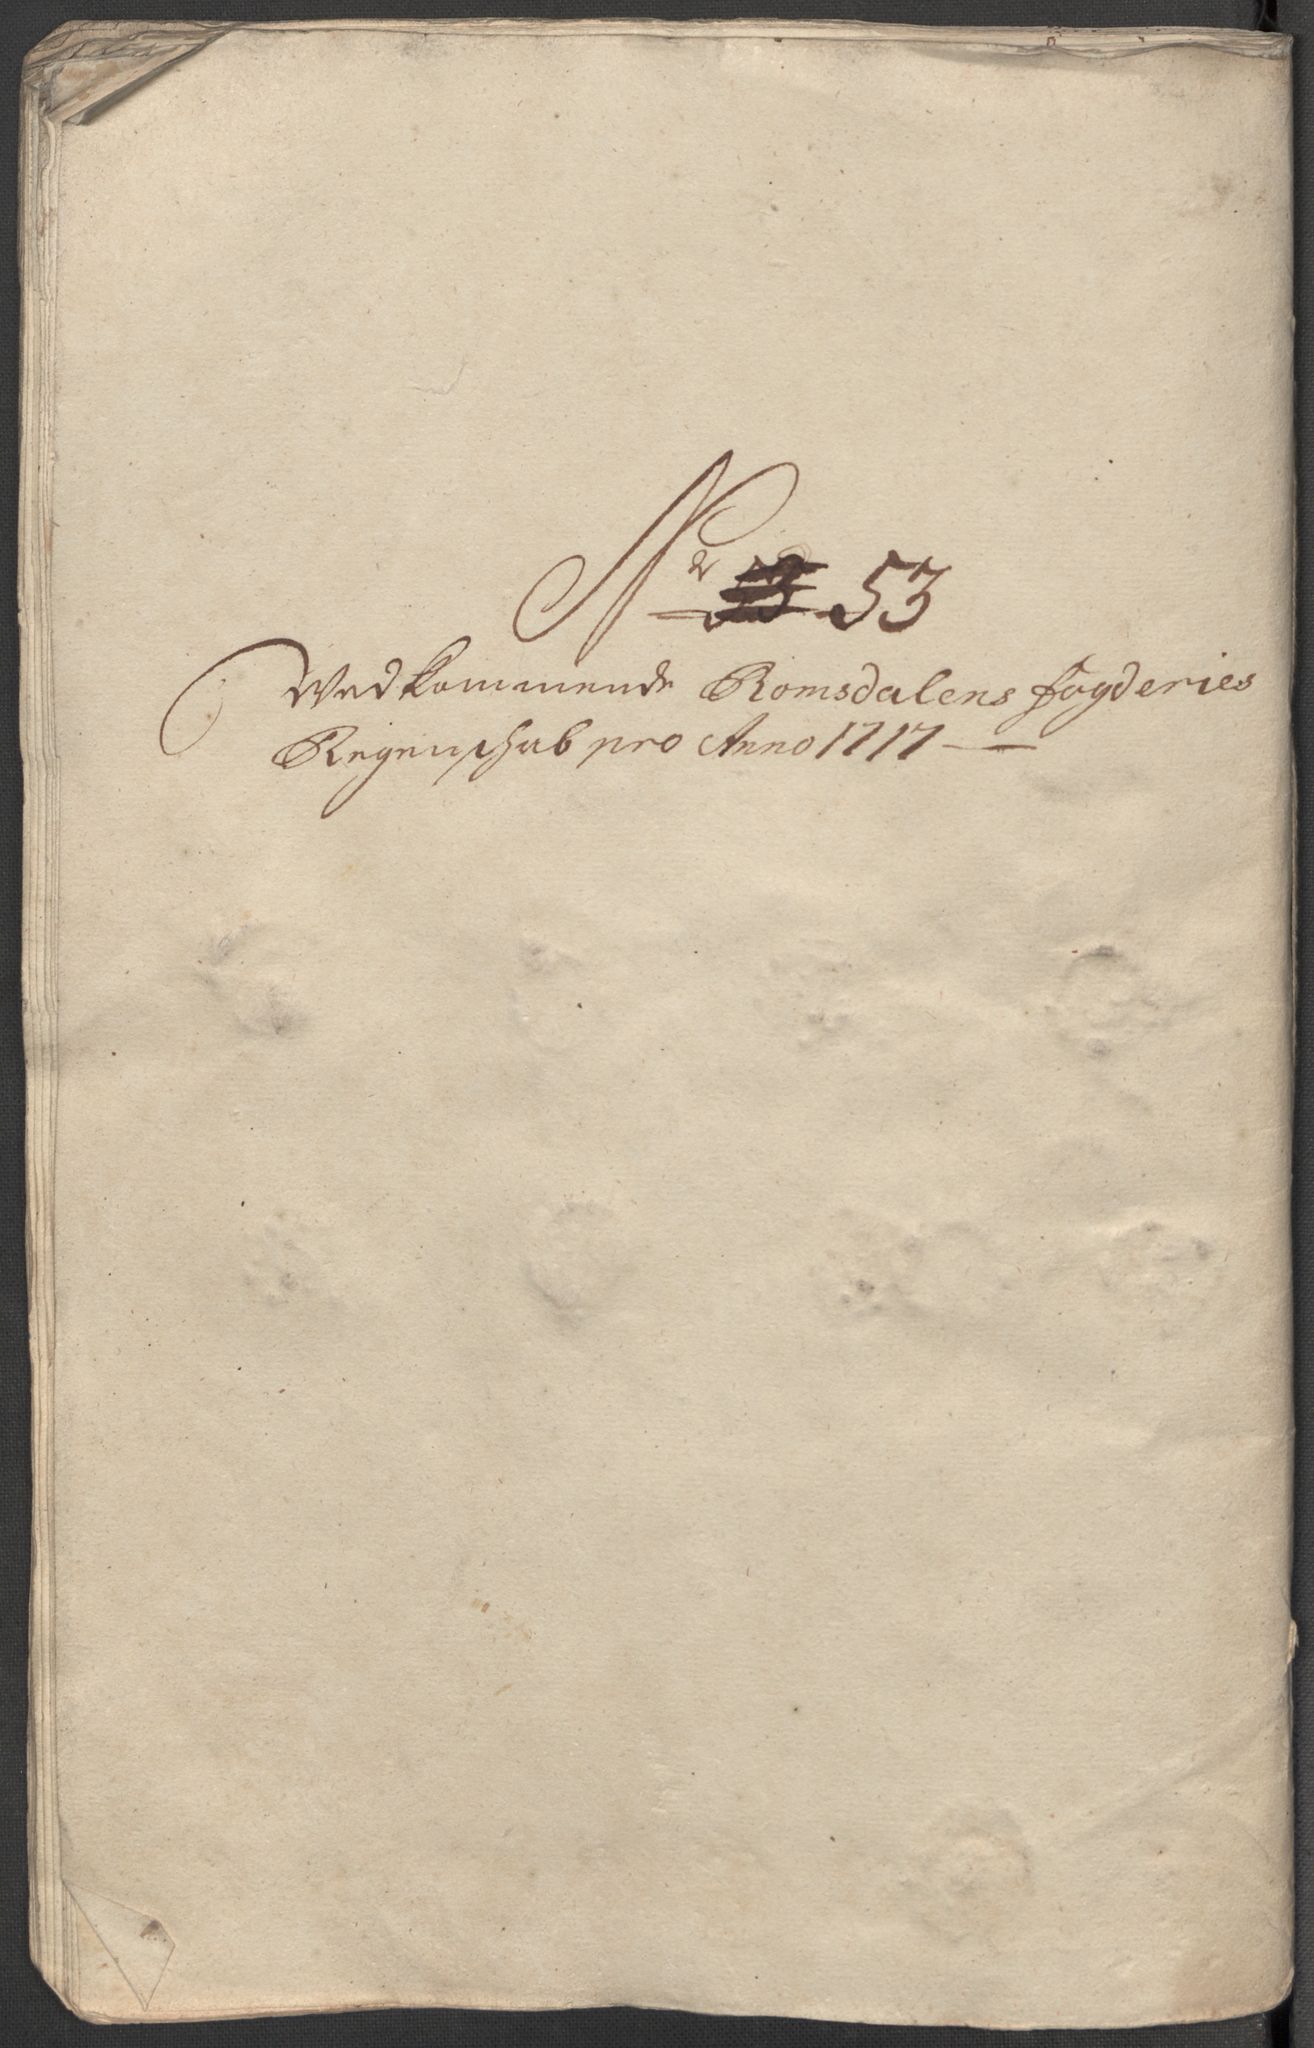 Nr 53
Vedkommende Romsdalens fogderies
Regenschab pro Anno 1717